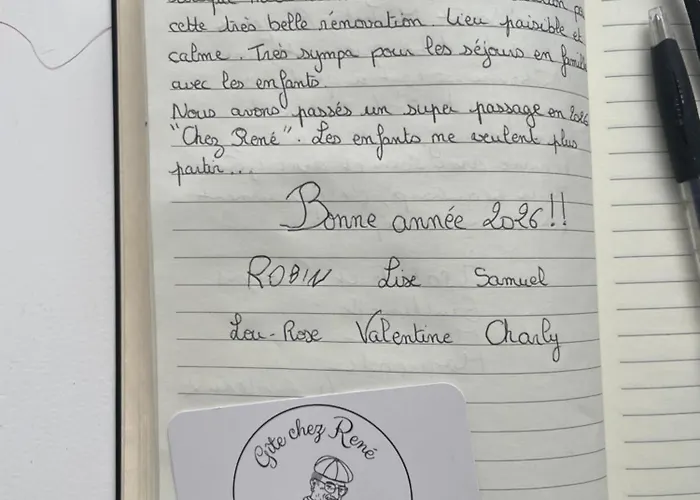 cette très belle rénovation. Lieu paisible et
calme. Très sympa pour les séjours en famille
avec les enfants.
Nous avons passés un super passage en 2026
"Chez René". Les enfants ne veulent plus
partir...
Bonne année 2026!!
ROBIN Lise Samuel
Lou-Rose Valentine Charly
Gîte chez René